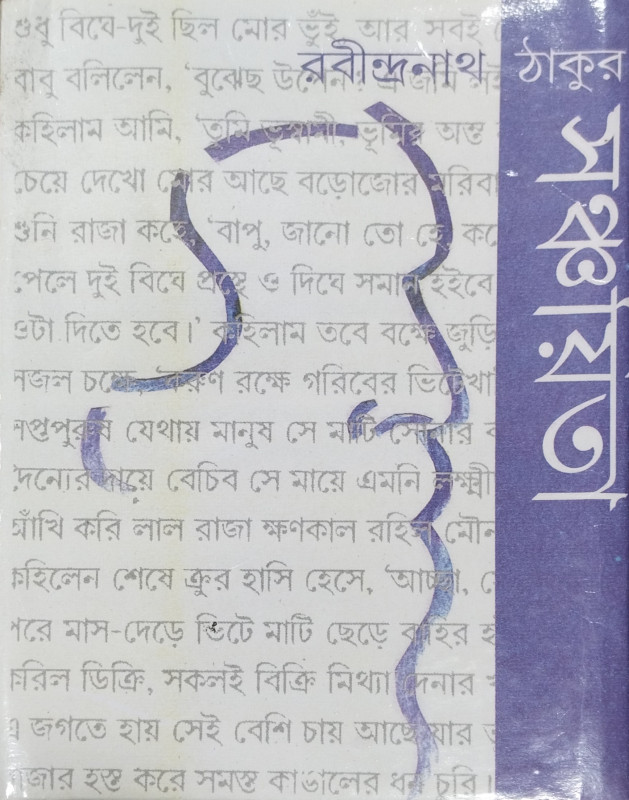 শুধু বিঘে-দুই ছিল মোর ভুঁই, আর সবই
রবীন্দ্রনাথ ঠাকুর
সঞ্চয়িতা
বাবু বলিলেন, 'বুঝেছ
কহিলাম আমি, 'তুমি ভূস্বামী, ভূমির অন্ত
চেয়ে দেখো মোর আছে বড়োজোর মরিবা
শুনি রাজা কহে, 'বাপু, জানো তো হে, করে
পেলে দুই বিঘে প্রস্থে ও দিঘে সমান হইবে
ওটা দিতে হবে।' কহিলাম তবে বক্ষে জুড়ি
সজল চক্ষে, 'করুণ রক্ষে গরিবের ভিটেখা
সপ্তপুরুষ যেথায় মানুষ সে মাটি সোনার
দৈন্যের দায়ে বেচিব সে মায়ে এমনি লক্ষ্মী
আঁখি করি লাল রাজা ক্ষণকাল রহিল মৌন
কহিলেন শেষে ক্রুর হাসি হেসে, 'আচ্ছা,
পরে মাস-দেড়ে ভিটে মাটি ছেড়ে বাহির
করিল ডিক্রি, সকলই বিক্রি মিথ্যা দেনার
এ জগতে হায় সেই বেশি চায় আছে যার
রাজার হস্ত করে সমস্ত কাঙালের ধন চুরি।